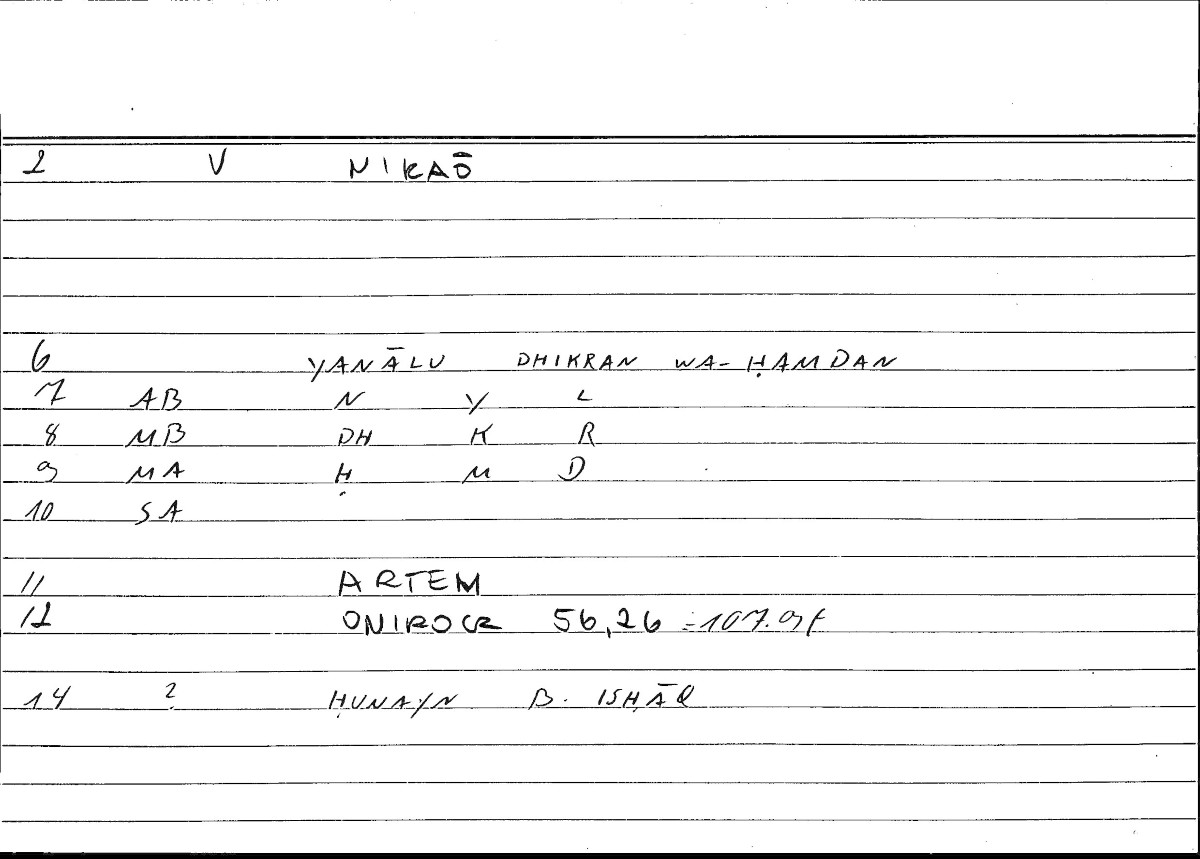 2 V NIKAŌ
6 YANĀLU DHIKRAN WA-ḤAMDAN
7 AB N Y L
8 MB DH K R
9 MA Ḥ M D
10 SA
11 ARTEM
12 ONIROCR 56,26 = 107.9f
14 ? ḤUNAYN B. ISḤĀQ